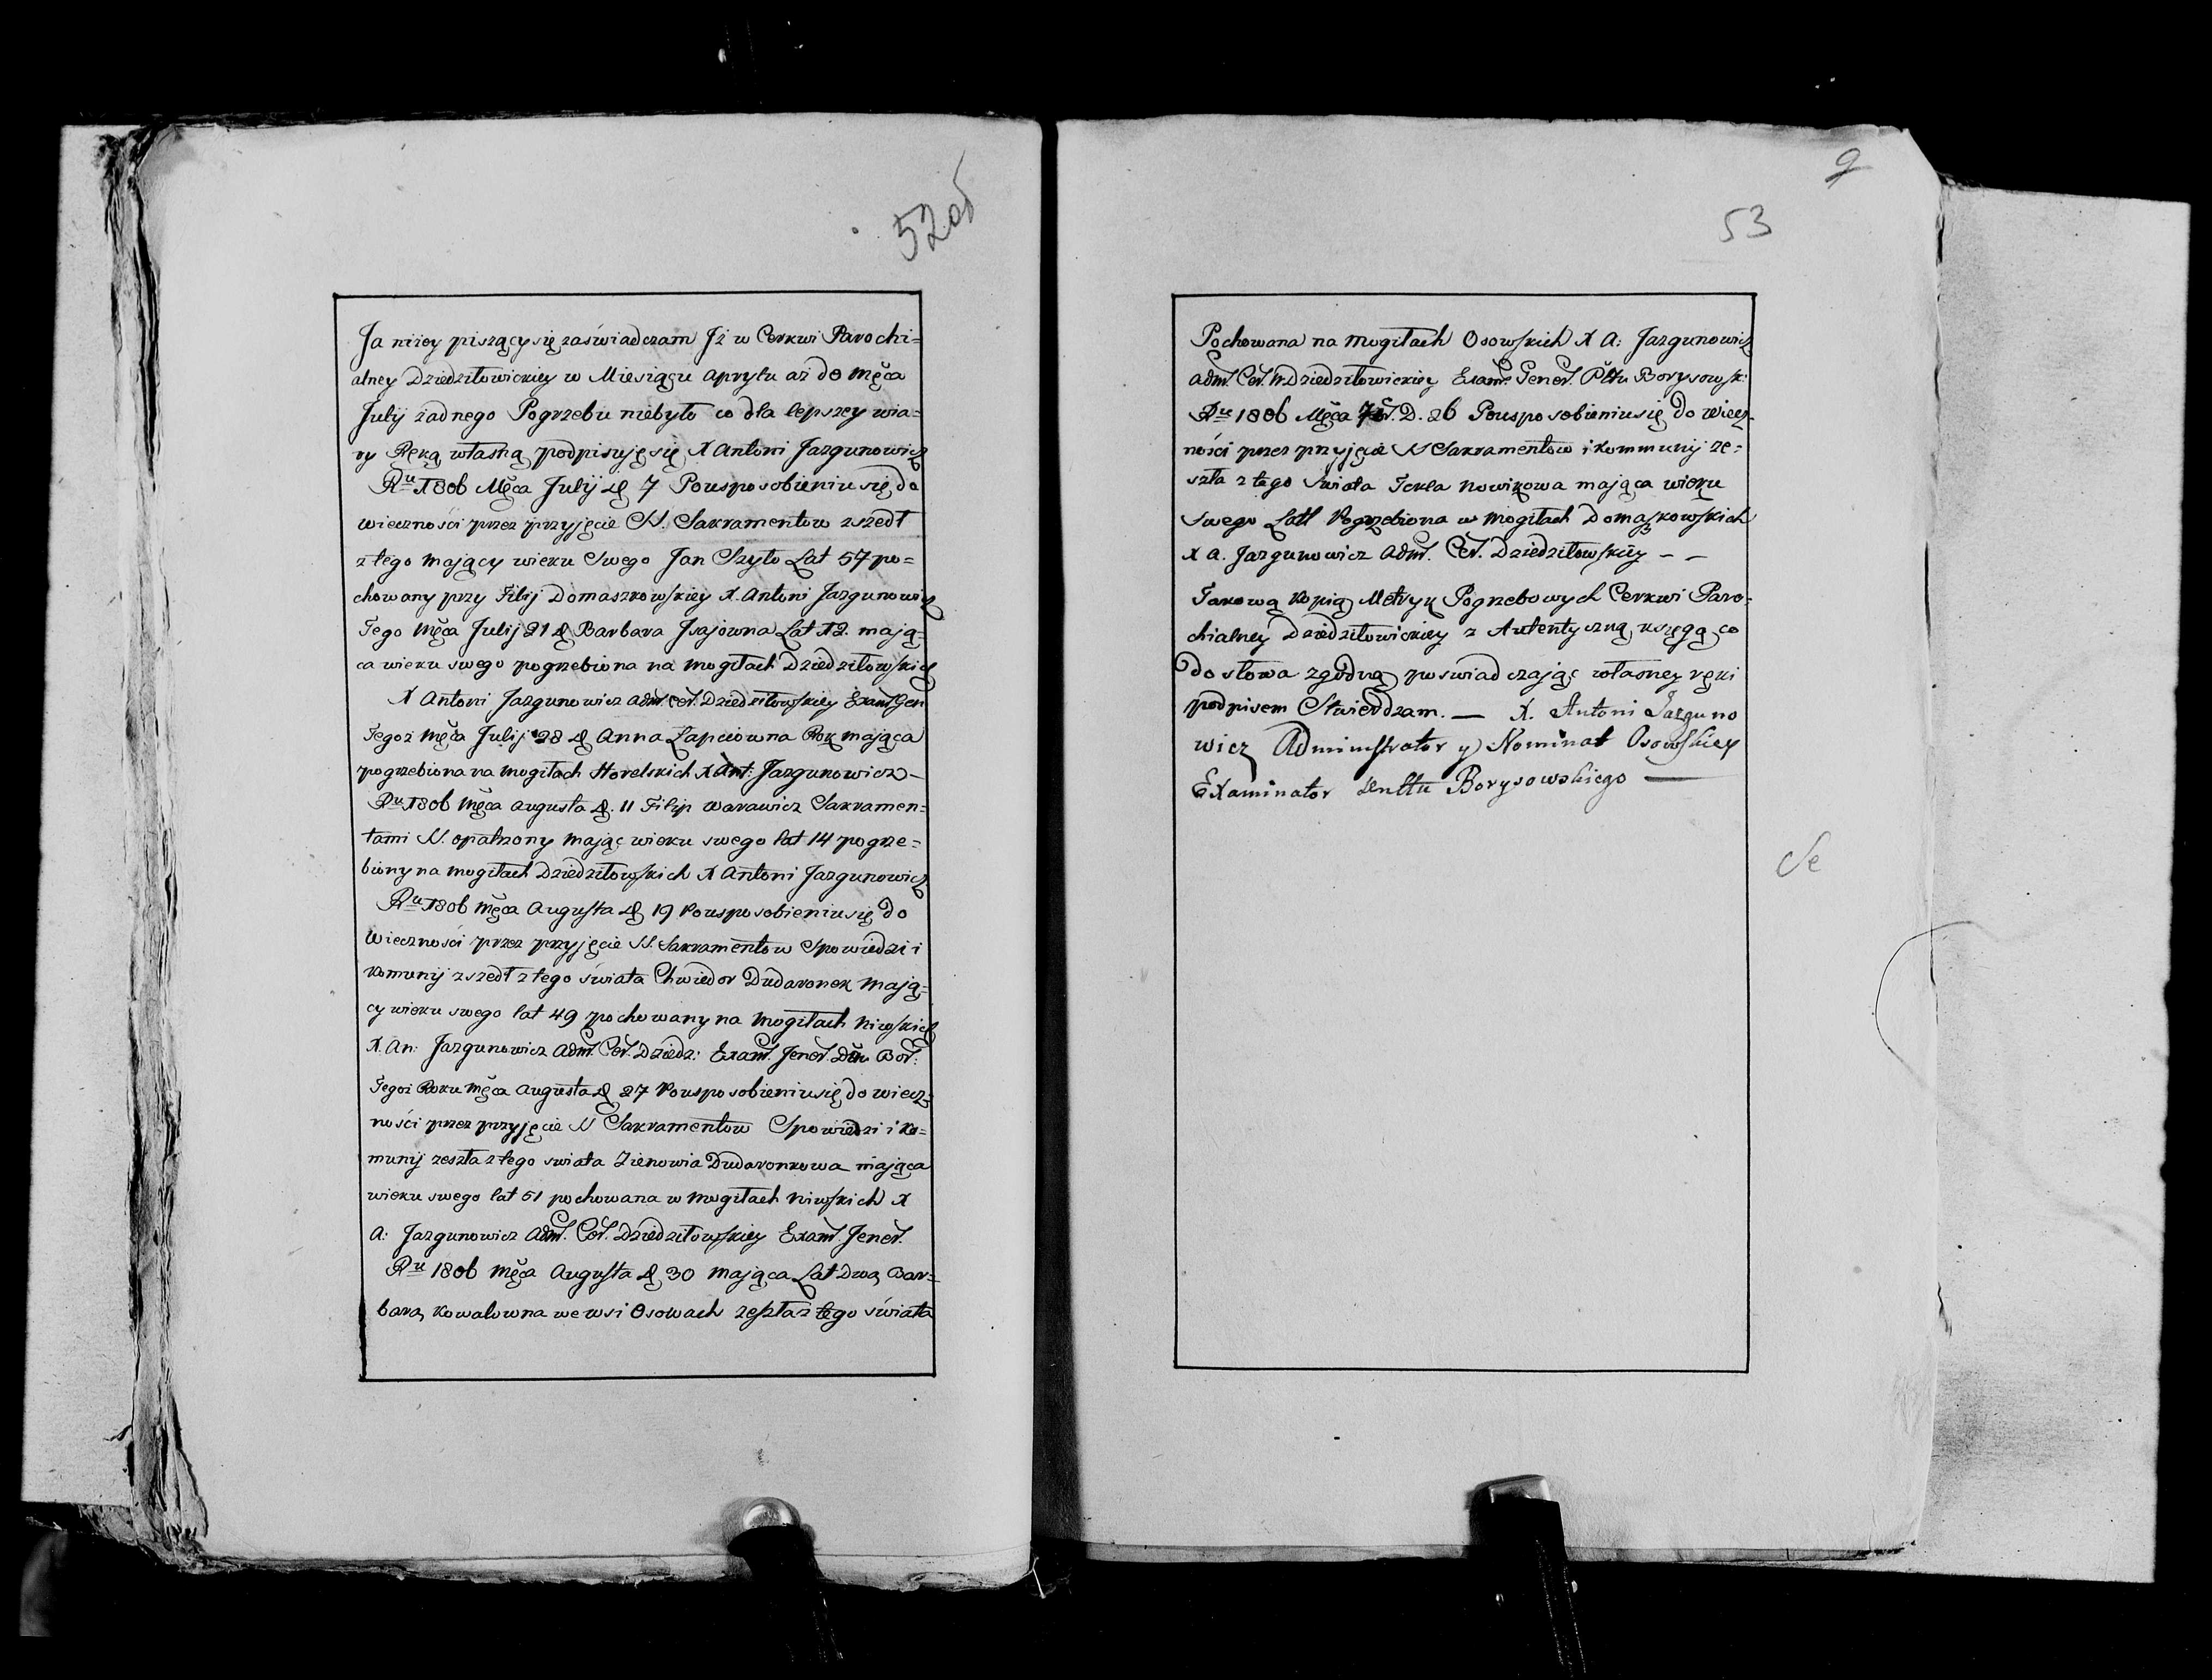 52 об
Ja niżey piszący się zaświadczam Jż w Cerkwi Parochi=
alney Dziedziłowickiey w Miesiącu Apryłu aż do Męca
Julij żadnego Pogrzebu niebyło co dla lepszey wia=
ry Ręką własną podpisuję się X Antoni Jazgunowicz
Ru 1806 Męca Julij D 7 Pouspo sobieniu się do
wieczności przez przyjęcie SS. Sakramentow zszedł
z tego mający wieku Swego Jan Szyło Lat 57 po=
chowany przy Filij Domaszkowskiey X. Antoni Jazgunowicz
Tego Męca Julij 21 D Barbara Jsajowna Lat 12. mają=
ca wieku swego pogrzebiona na mogiłach Dziedziłowskich
X Antoni Jazgunowicz Adm. Cer. Dziedziłowskiey Exam. Gen
Tegoż Męca Julij 28 D Anna Łapciowna Rok mająca
pogrzebiona na mogiłach Horelskich X Ant: Jazgunowicz —
Ru 1806 Męca Augusta D. 11 Filip Warawicz Sakramen=
tami SS. opatrzony mając wieku swego lat 14 pogrze=
biony na mogiłach Dziedziłowskich X Antoni Jazgunowicz
Ru 1806 Męca Augusta D 19 Pouspo sobieniu się do
Wieczności przez przyjęcie SS. Sakramentow Spowiedzi i
Komunij zszedł z tego świata Chwiedor Dudaronek mają=
cy wieku swego lat 49 pochowany na mogiłach Niwskich
X. An: Jazgunowicz Adm. Cer. Dziedz: Exam. Jener. Bor:
Tegoż Roku Męca Augusta D 27 Pouspo sobieniu się do wiecz=
ności przez przyjęcie SS Sakramentow Spowiedzi i Ko=
munij zeszła z tego swiata Zienowia Dudaronkowa mająca
wieku swego lat 51 pochowana w mogiłach Niwskich X
A: Jazgunowicz Adm. Cer. Dziedziłowskiey Exam. Jener.
Ru 1806 Męca Augusta D 30 mająca Lat Dwa Bar=
bara Kowalowna we wsi Osowach zeszła z tego świata
9
53
Pochowana na mogiłach Osowskich X A: Jazgunowicz
Adm. Cer. Dziedziłowickiey Exam. Gener. Pttu Borysowsk:
Ru 1806 Męca D. 26 Pouspo sobieniu się do wiecz=
ności przez przyjęcie SS Sakramentow i Kommunij ze=
szła z tego Swiata Tekla Nowikowa mająca wieku
Swego Lat Pogrzebiona w mogiłach Domaszkowskich
X A. Jazgunowicz Adm. Cer. Dziedziłowskiey — —
Takową Kopią Metryk Pogrzebowych Cerkwi Paro=
chialney Dziedziłowickiey z Autentyczną xsięgą co
do słowa zgodną poswiadczając własney ręki
podpisem Stwierdzam. — X. Antoni Jazguno
wicz Administrator y Nominat Osowskiey
Examinator Pnttu Borysowskiego —